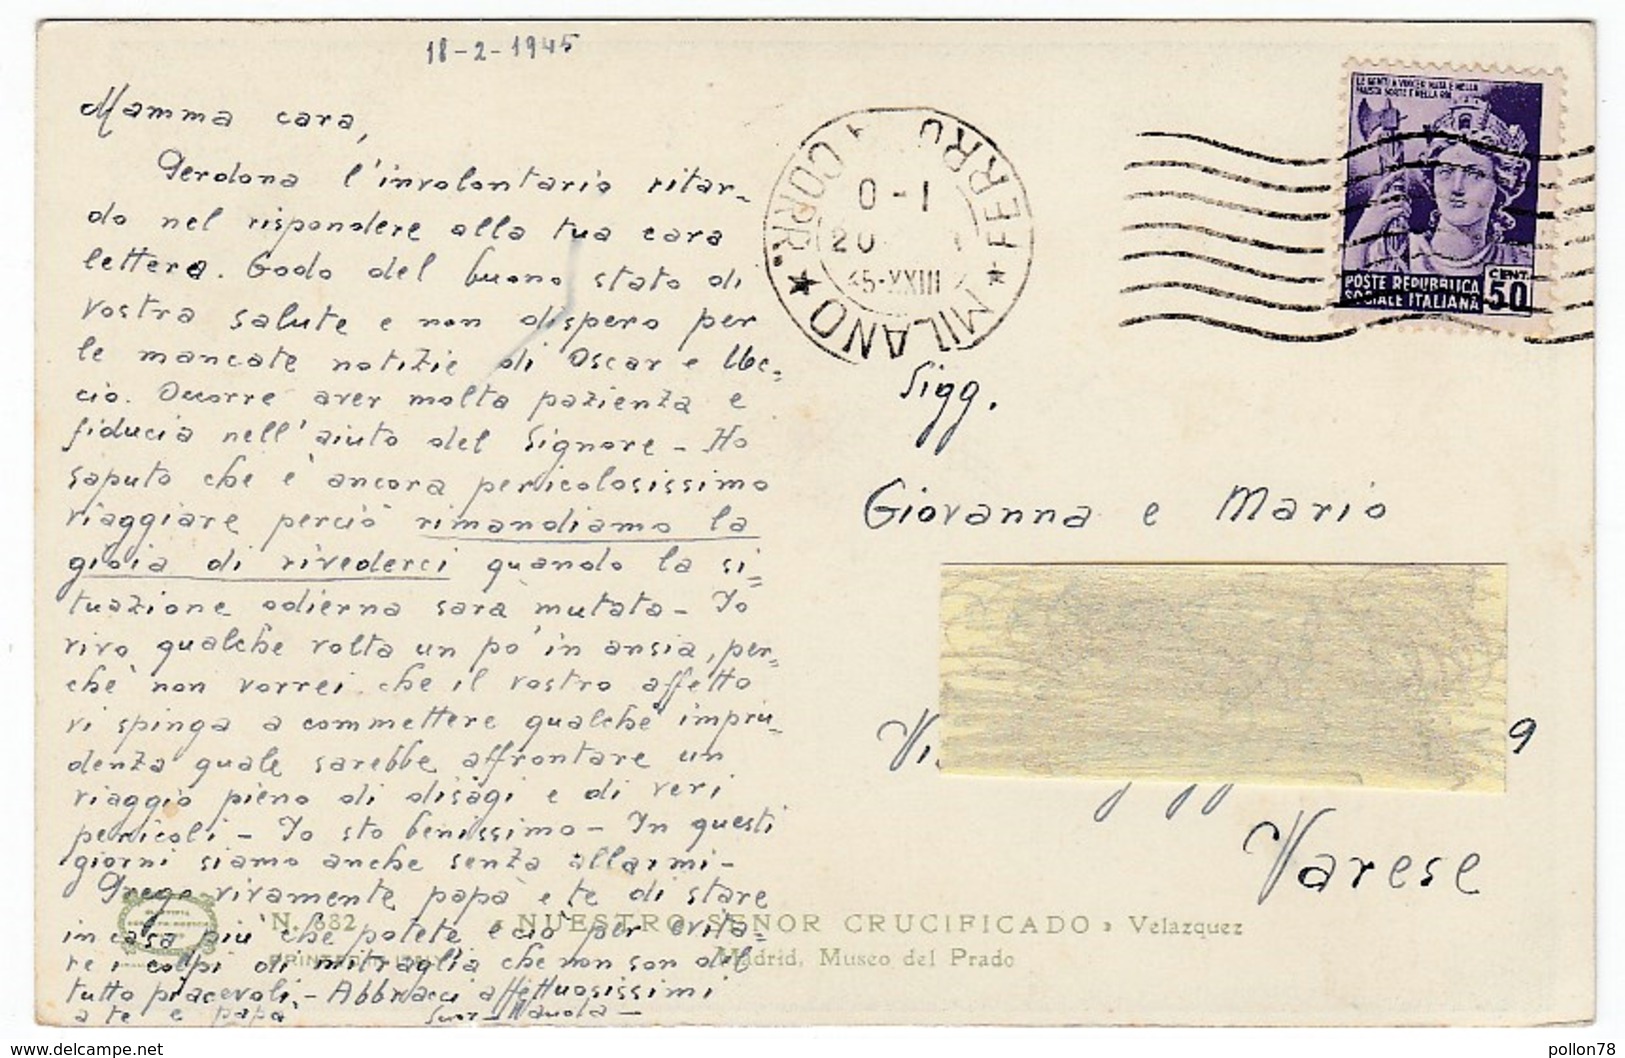 18-2-1945
Mamma cara,
Perdona l'involontario ritar-
do nel rispondere alla tua cara
lettera. Godo del buono stato di
vostra salute e non dispero per
le mancate notizie di Oscar e Uc=
cio. Occorre aver molta pazienza e
fiducia nell'aiuto del Signore - Ho
saputo che è ancora pericolosissimo
viaggiare perciò rimandiamo la
gioia di rivederci quando la si=
tuazione odierna sarà mutata - Io
vivo qualche volta un po' in ansia, per=
chè non vorrei che il vostro affetto
vi spinga a commettere qualche impru-
denza quale sarebbe affrontare un
viaggio pieno di disagi e di veri
pericoli - Io sto benissimo - In questi
giorni siamo anche senza allarmi -
Prego vivamente papà e te di stare
in casa più che potete e ciò per evita-
re i colpi di mitraglia che non son del
tutto piacevoli. - Abbracci affettuosissimi
a te e papà Suor
MILANO FERR
CORR
0-1
20
45-XXIII
LE GENTI A
POSTE REPUBBLICA
SOCIALE ITALIANA
CENT.
50
Sigg.
Giovanna e Mario
9
Varese
N. 682 « NUESTRO SEÑOR CRUCIFICADO » Velazquez
PRINTED IN ITALY Madrid, Museo del Prado
www.delcampe.net
pollon78